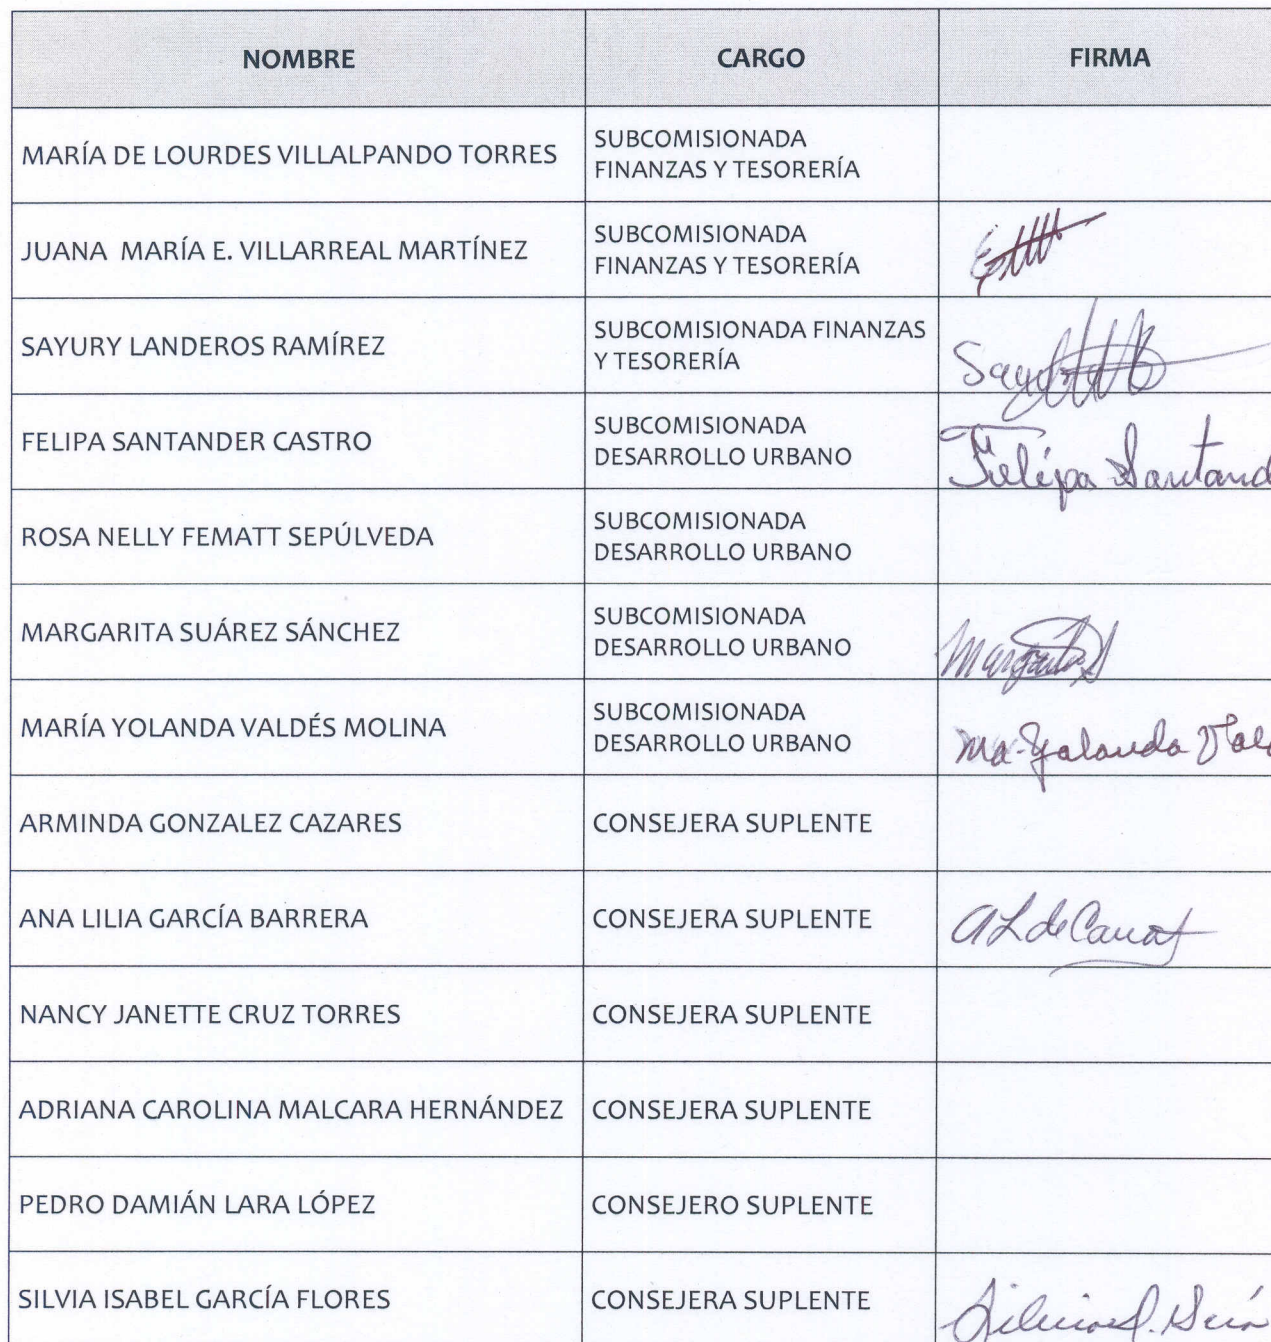 NOMBRE CARGO FIRMA
MARÍA DE LOURDES VILLALPANDO TORRES SUBCOMISIONADA
FINANZAS Y TESORERÍA
JUANA MARÍA E. VILLARREAL MARTÍNEZ SUBCOMISIONADA
FINANZAS Y TESORERÍA
SAYURY LANDEROS RAMÍREZ SUBCOMISIONADA FINANZAS
Y TESORERÍA
FELIPA SANTANDER CASTRO SUBCOMISIONADA
DESARROLLO URBANO
Felipa Santand
ROSA NELLY FEMATT SEPÚLVEDA SUBCOMISIONADA
DESARROLLO URBANO
MARGARITA SUÁREZ SÁNCHEZ SUBCOMISIONADA
DESARROLLO URBANO
MARÍA YOLANDA VALDÉS MOLINA SUBCOMISIONADA
DESARROLLO URBANO
Ma. Yolanda Vald
ARMINDA GONZALEZ CAZARES CONSEJERA SUPLENTE
ANA LILIA GARCÍA BARRERA CONSEJERA SUPLENTE
NANCY JANETTE CRUZ TORRES CONSEJERA SUPLENTE
ADRIANA CAROLINA MALCARA HERNÁNDEZ CONSEJERA SUPLENTE
PEDRO DAMIÁN LARA LÓPEZ CONSEJERO SUPLENTE
SILVIA ISABEL GARCÍA FLORES CONSEJERA SUPLENTE